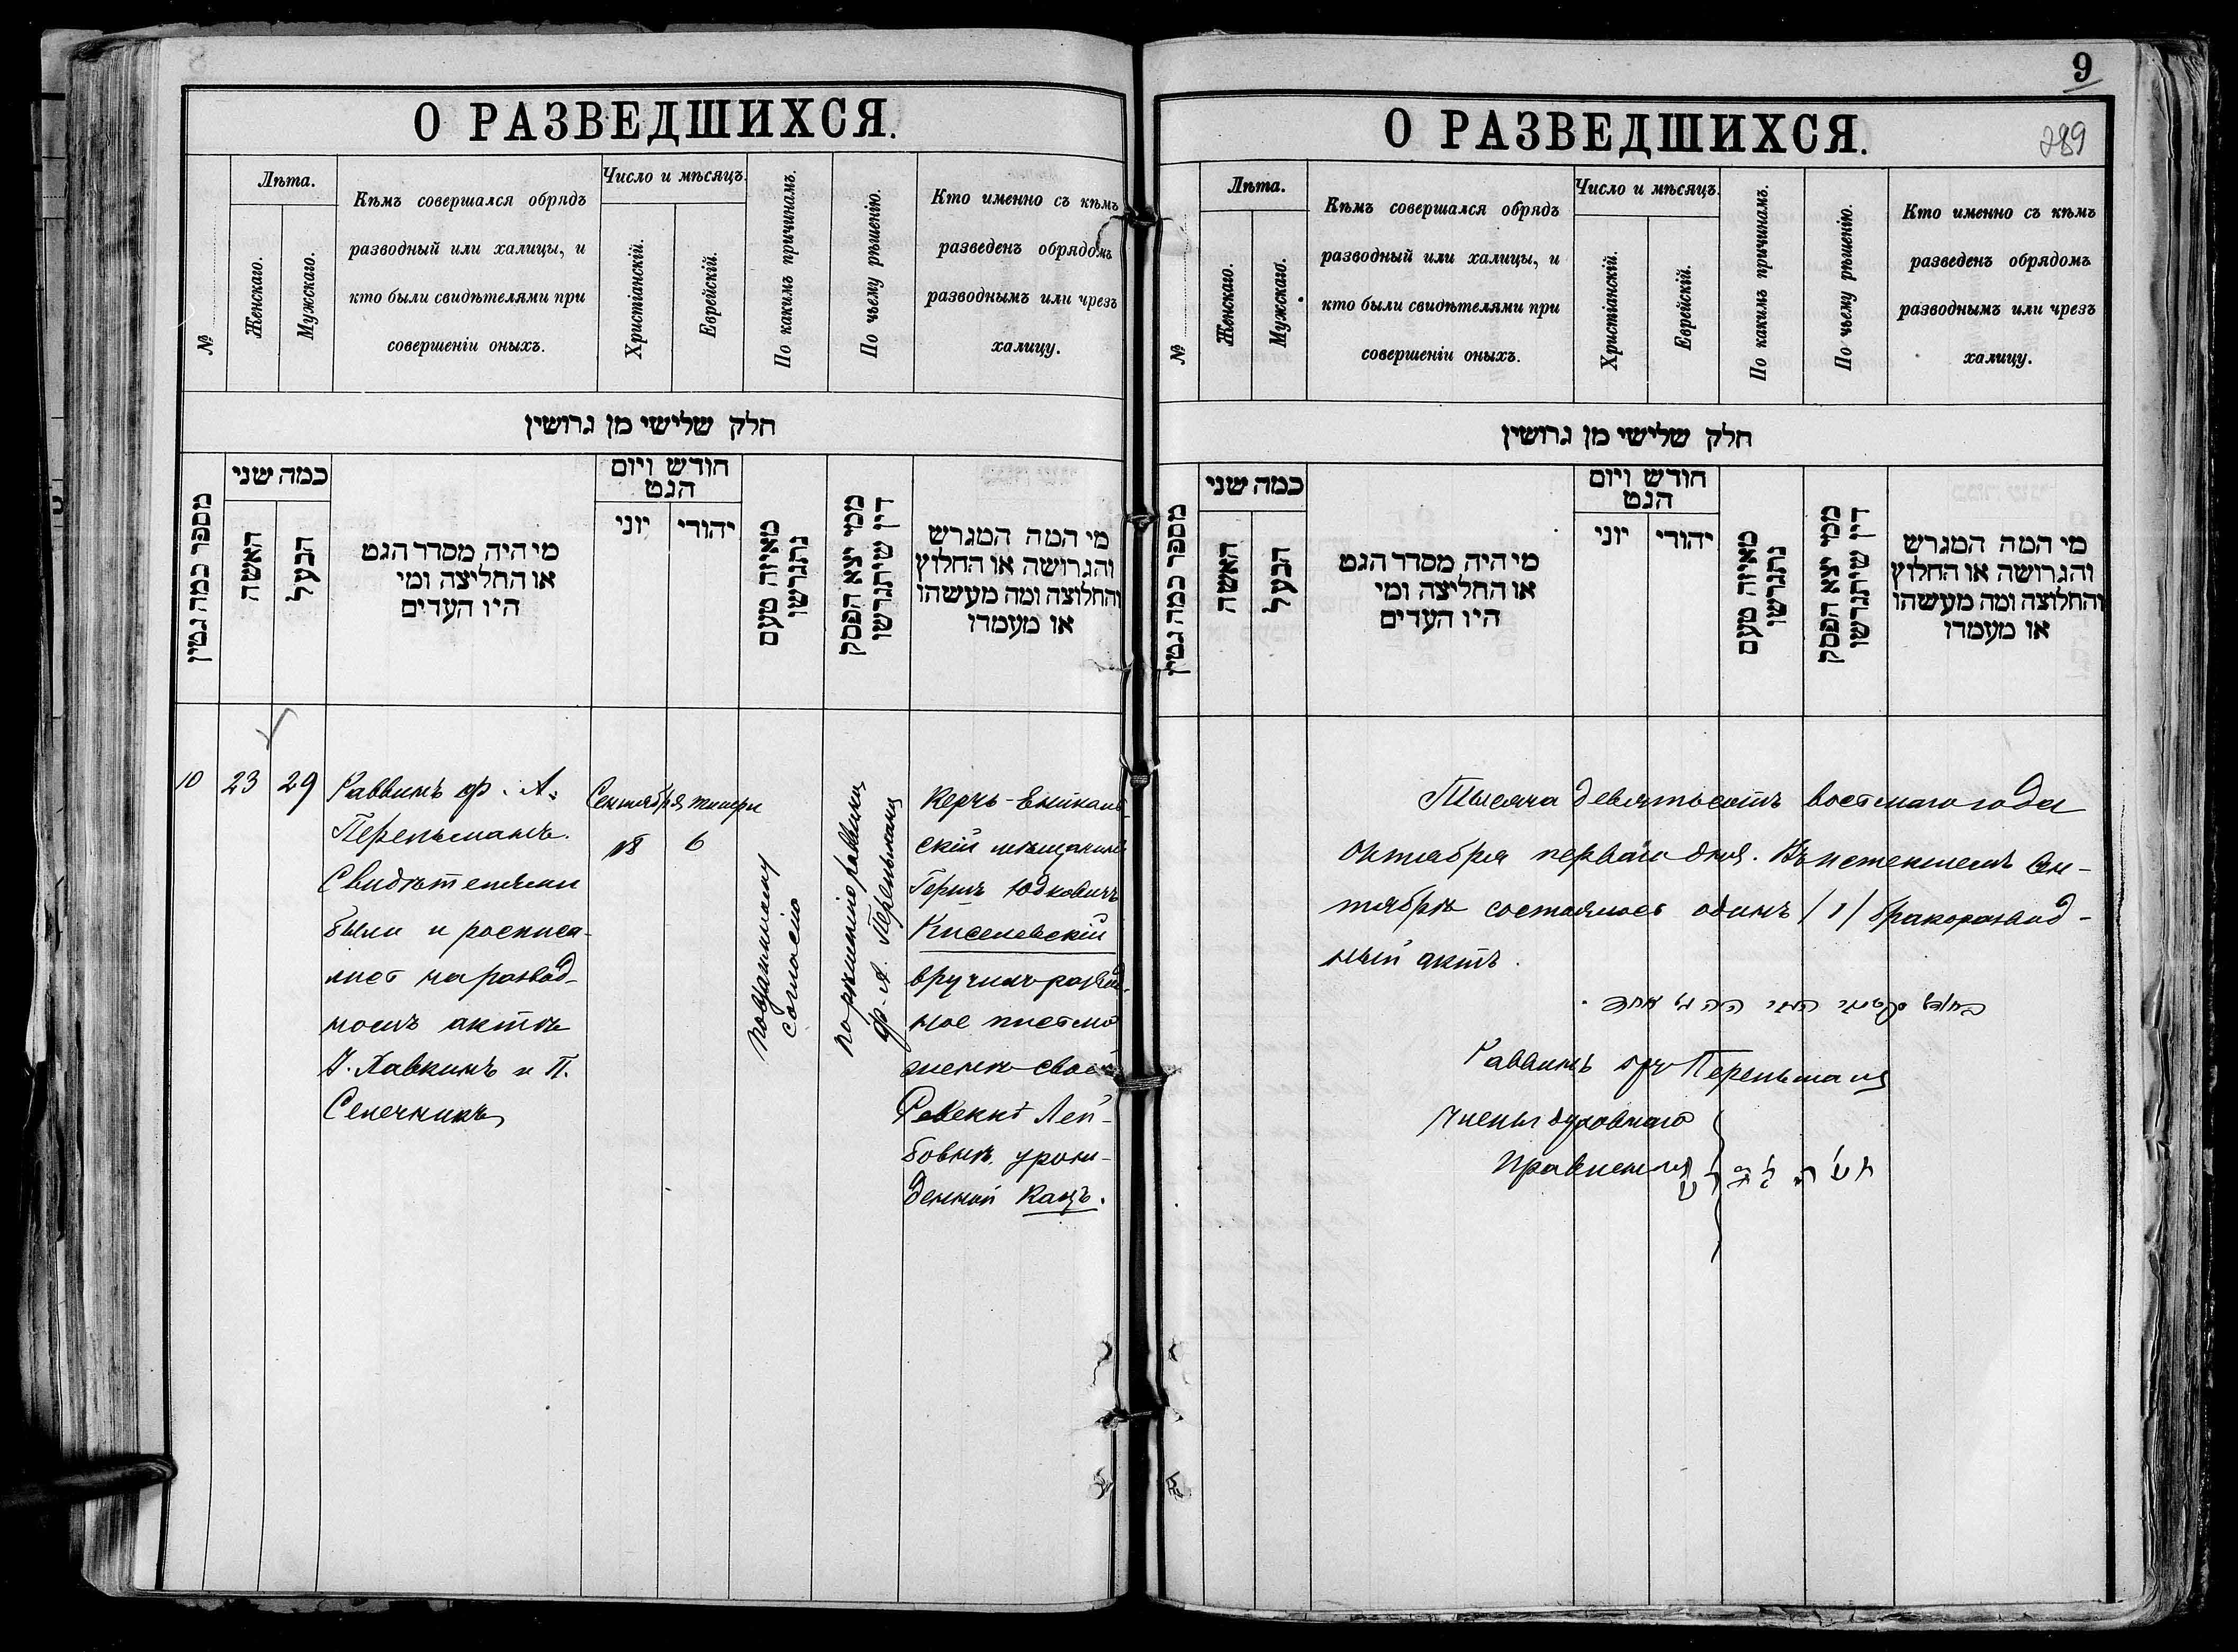 О РАЗВЕДШИХСЯ.
№
Лѣта.
Женскаго.
Мужскаго.
Кѣмъ совершался обрядъ
разводный или халицы, и
кто были свидѣтелями при
совершеніи оныхъ.
Число и мѣсяцъ.
Христіанскій.
Еврейскій.
По какимъ причинамъ.
По чьему рѣшенію.
Кто именно съ кѣмъ
разведенъ обрядомъ
разводнымъ или чрезъ
халицу.
חלק שלישי מן גרושין
מספר כמה גטין
כמה שני
האשה
הבעל
מי היה מסדר הגט
או החליצה ומי
היו העדים
חודש ויום
הגט
יוני
יהודי
מאיזה טעם
נתגרשו
ממי יצא הפסק
דין שיתגרשו
מי המה המגרש
והגרושה או החלוץ
והחלוצה ומה מעשהו
או מעמדו
10
23
29
Раввинъ ф. А.
Перельманъ.
Свидѣтелями
были и росписа-
лись на развод-
номъ актѣ
Хавкинъ и П.
Селечникъ
Сентября
18
тишри
6
по взаимному
согласію
по рѣшенію раввина
ф. А. Перельмана
Керчь-Еникаль-
скій мѣщанинъ
Гершъ Юдковичъ
Киселевскій
вручилъ развод-
ное письмо
женѣ своей
Ревеккѣ Лей-
бовнѣ, урож-
денной Кацъ.
9
О РАЗВЕДШИХСЯ.
289
№
Лѣта.
Женскаго.
Мужскаго.
Кѣмъ совершался обрядъ
разводный или халицы, и
кто были свидѣтелями при
совершеніи оныхъ.
Число и мѣсяцъ.
Христіанскій.
Еврейскій.
По какимъ причинамъ.
По чьему рѣшенію.
Кто именно съ кѣмъ
разведенъ обрядомъ
разводнымъ или чрезъ
халицу.
חלק שלישי מן גרושין
מספר כמה גטין
כמה שני
האשה
הבעל
מי היה מסדר הגט
או החליצה ומי
היו העדים
חודש ויום
הגט
יוני
יהודי
מאיזה טעם
נתגרשו
ממי יצא הפסק
דין שיתגרשו
מי המה המגרש
והגרושה או החלוץ
והחלוצה ומה מעשהו
או מעמדו
Тысяча девятьсотъ восьмаго года
Октября перваго дня. Въ истекшемъ Сен-
тябрѣ состоялось одинъ /1/ бракоразвод-
ный актъ.
Раввинъ Перельманъ
Члены духовнаго
Правленія